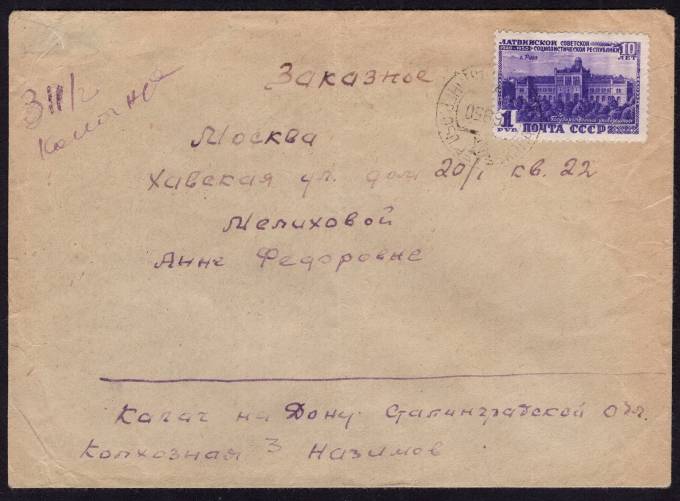 Заказное
Москва
Хавская ул. дом 20/1 кв. 22
Мелиховой
Анне Федоровне
Калач на Дону Сталинградской Обл.
Колхозная 3 Назимов
ЛАТВИЙСКОЙ СОВЕТСКОЙ
1940-1950 СОЦИАЛИСТИЧЕСКОЙ РЕСПУБЛИКИ
10 ЛЕТ
г. Рига
Государственный университет
1 РУБ. ПОЧТА СССР